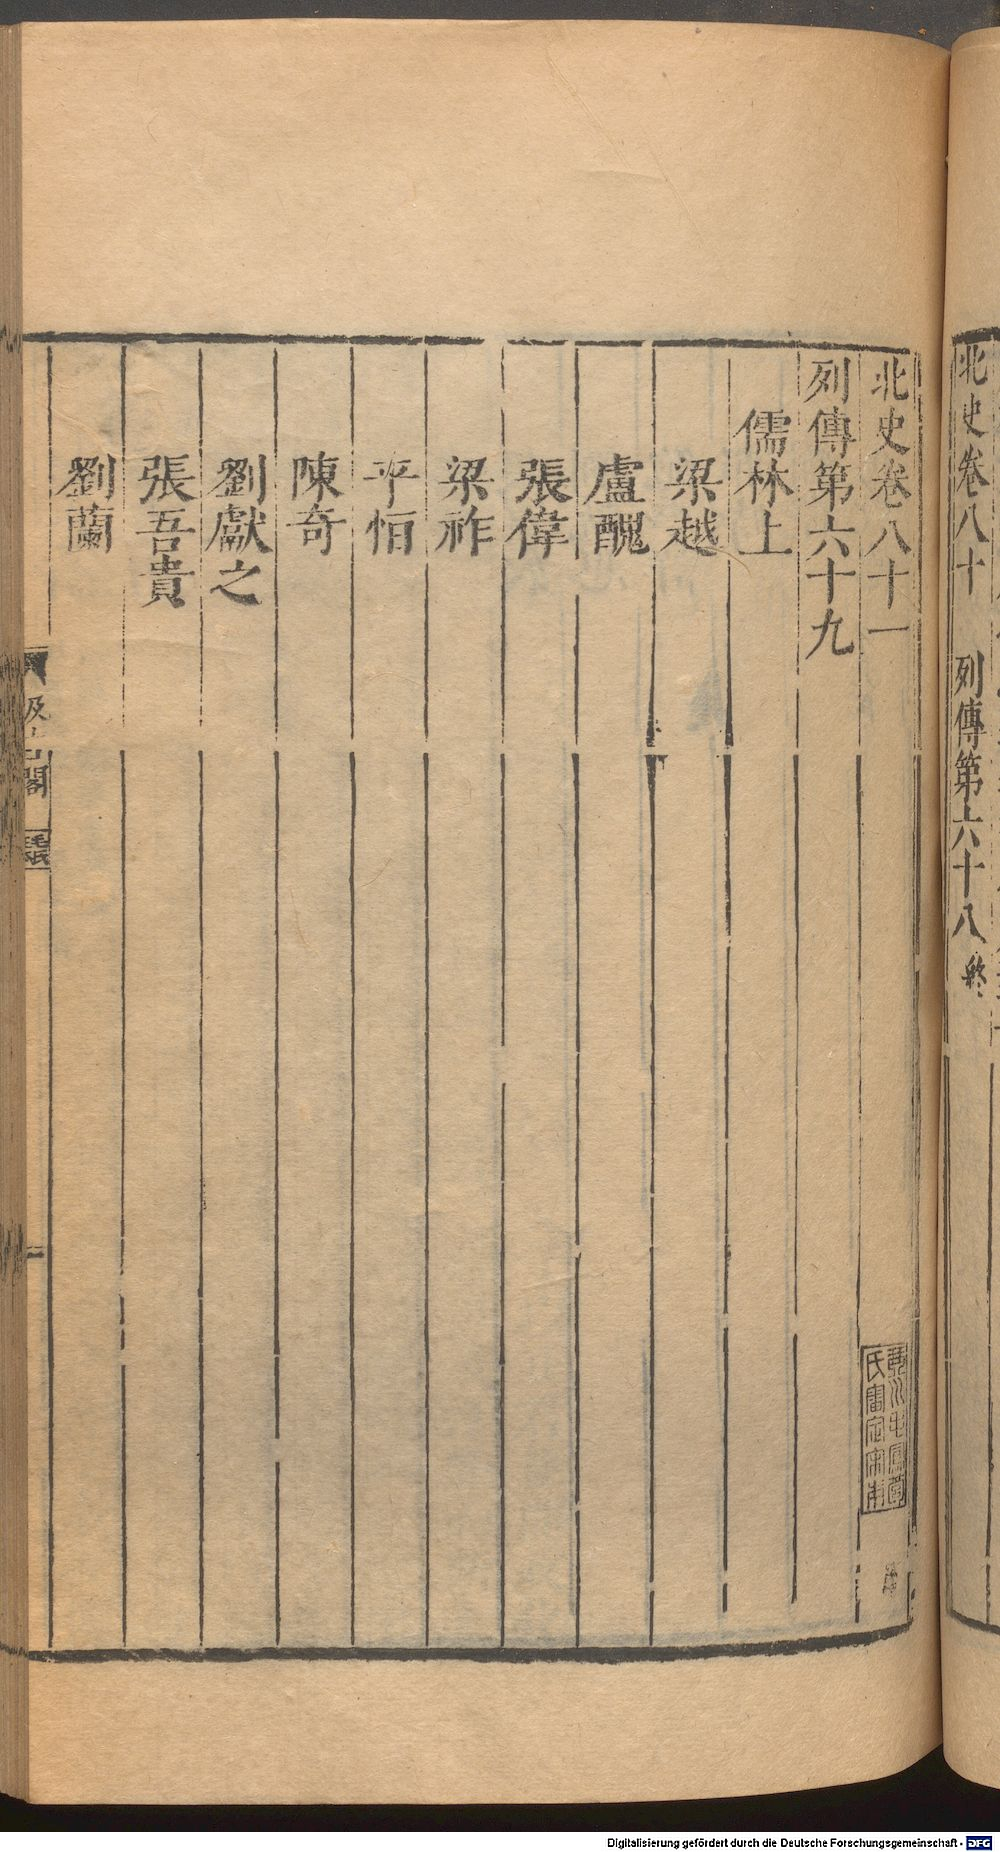 北史卷八十 列傳第六十八 終
北史卷八十一
列傳第六十九
儒林上
梁越
盧醜
張偉
梁祚
平恒
陳奇
劉獻之
張吾貴
劉蘭
汲古閣
毛氏
Digitalisierung gefördert durch die Deutsche Forschungsgemeinschaft - DFG